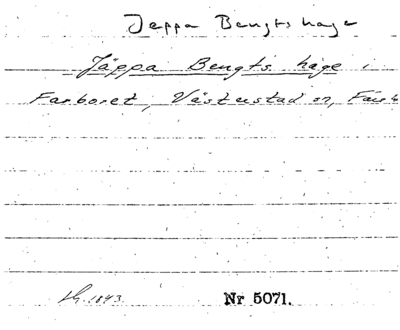 Jeppa Bengts hage
Jäppa Bengts häge i
Farboret, Västerstad sn, Färs
1843
Nr 5071.